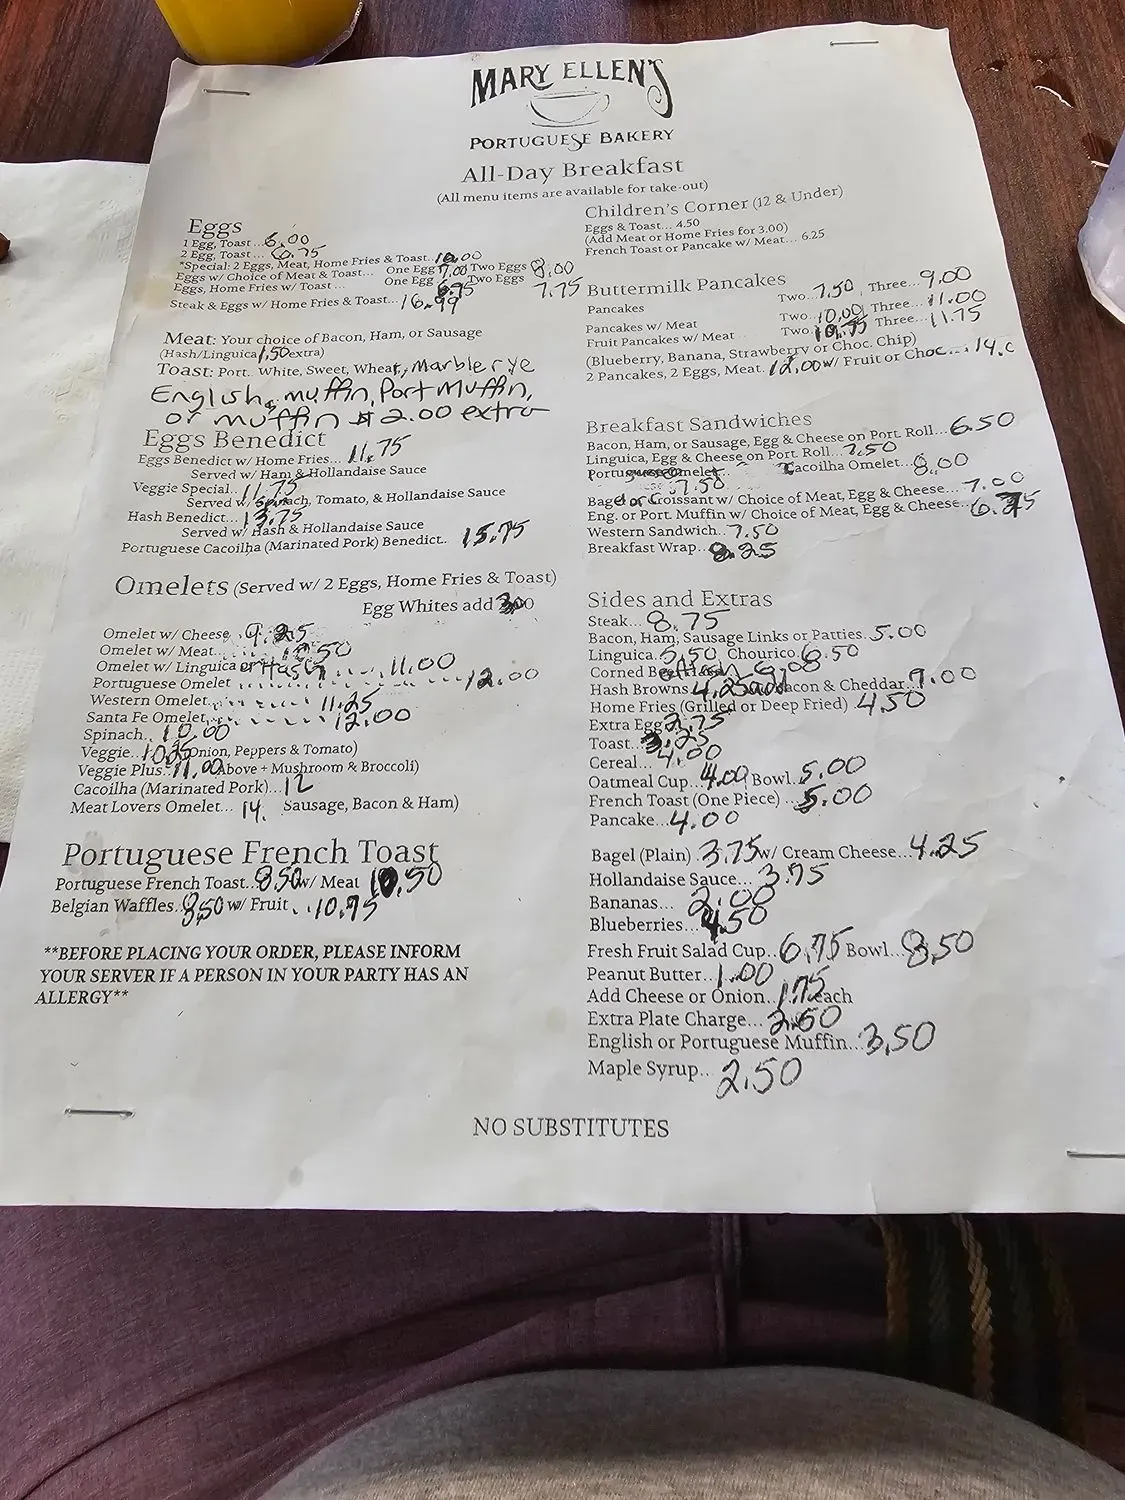 MARY ELLEN'S
PORTUGUESE BAKERY
All-Day Breakfast
(All menu items are available for take-out)
Eggs
1 Egg, Toast...6.00
2 Egg, Toast... 6.75
*Special: 2 Eggs, Meat, Home Fries & Toast..10.00
Eggs w/ Choice of Meat & Toast... One Egg 7.00 Two Eggs 8.00
Eggs, Home Fries w/ Toast... One Egg 6.95 Two Eggs 7.75
Steak & Eggs w/ Home Fries & Toast... 16.99
Meat: Your choice of Bacon, Ham, or Sausage
(Hash/Linguica 1.50 extra)
Toast: Port. White, Sweet, Wheat, Marble rye
English muffin, Port Muffin,
or muffin $ 2.00 extra
Eggs Benedict
Eggs Benedict w/ Home Fries... 11.75
Served w/ Ham & Hollandaise Sauce
Veggie Special.. 11.75
Served w/ Spinach, Tomato, & Hollandaise Sauce
Hash Benedict... 13.75
Served w/ Hash & Hollandaise Sauce
Portuguese Cacoilha (Marinated Pork) Benedict.. 15.75
Omelets (Served w/ 2 Eggs, Home Fries & Toast)
Egg Whites add 3.00
Omelet w/ Cheese.. 9.25
Omelet w/ Meat... 10.50
Omelet w/ Linguica or Hash ..... 11.00
Portuguese Omelet ............ 12.00
Western Omelet....... 11.25
Santa Fe Omelet....... 12.00
Spinach.. 10.00
Veggie.. 10.25 Onion, Peppers & Tomato)
Veggie Plus.. 11.00 Above + Mushroom & Broccoli)
Cacoilha (Marinated Pork)... 12
Meat Lovers Omelet... 14. Sausage, Bacon & Ham)
Portuguese French Toast
Portuguese French Toast..8.50 w/ Meat 10.50
Belgian Waffles..8.50 w/ Fruit... 10.75
**BEFORE PLACING YOUR ORDER, PLEASE INFORM
YOUR SERVER IF A PERSON IN YOUR PARTY HAS AN
ALLERGY**
Children's Corner (12 & Under)
Eggs & Toast... 4.50
(Add Meat or Home Fries for 3.00)
French Toast or Pancake w/ Meat... 6.25
Buttermilk Pancakes
Pancakes Two...7.50 Three...9.00
Pancakes w/ Meat Two...10.00 Three...11.00
Fruit Pancakes w/ Meat Two...10.75 Three...11.75
(Blueberry, Banana, Strawberry or Choc. Chip)
2 Pancakes, 2 Eggs, Meat. 12.00 w/ Fruit or Choc.... 14.
Breakfast Sandwiches
Bacon, Ham, or Sausage, Egg & Cheese on Port. Roll... 6.50
Linguica, Egg & Cheese on Port. Roll... 7.50
Cacoilha Omelet... 8.00
7.50
Bagel or Croissant w/ Choice of Meat, Egg & Cheese... 7.00
Eng. or Port. Muffin w/ Choice of Meat, Egg & Cheese... 6.75
Western Sandwich.. 7.50
Breakfast Wrap... 8.25
Sides and Extras
Steak... 8.75
Bacon, Ham, Sausage Links or Patties. 5.00
Linguica. 5.50 Chourico. 6.50
Corned Beef Hash 6.00
Hash Browns 4.25 add Bacon & Cheddar.. 7.00
Home Fries (Grilled or Deep Fried) 4.50
Extra Egg 2.75
Toast... 3.25
Cereal... 4.00
Oatmeal Cup.. 4.00 Bowl.. 5.00
French Toast (One Piece) .. 5.00
Pancake... 4.00
Bagel (Plain) . 3.75 w/ Cream Cheese... 4.25
Hollandaise Sauce... 3.75
Bananas... 2.00
Blueberries... 4.50
Fresh Fruit Salad Cup.. 6.75 Bowl... 8.50
Peanut Butter.. 1.00
Add Cheese or Onion.. 1.75 each
Extra Plate Charge... 2.50
English or Portuguese Muffin... 3.50
Maple Syrup.. 2.50
NO SUBSTITUTES